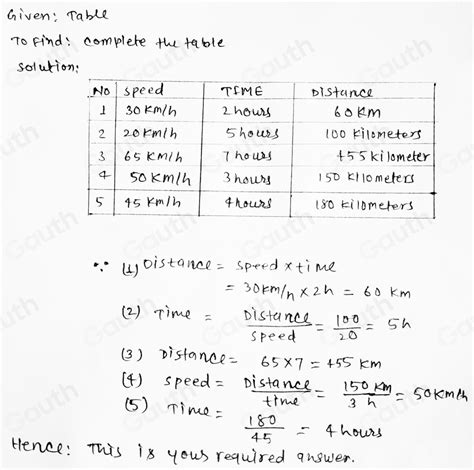 Given: Table
To Find: complete the table
Solution:
No speed TIME Distance
1 30 Km/h 2 hours 60 Km
2 20 Km/h 5 hours 100 Kilometers
3 65 Km/h 7 hours 455 Kilometer
4 50 Km/h 3 hours 150 Kilometers
5 45 Km/h 4 hours 180 Kilometers
∵ (1) Distance = speed x time
= 30Km/h x 2h = 60 Km
(2) Time = Distance/speed = 100/20 = 5h
(3) Distance = 65 x 7 = 455 Km
(4) speed = Distance/time = 150 Km/3 h = 50Km/h
(5) Time = 180/45 = 4 hours
Hence: This is yous required answer.
Gauth